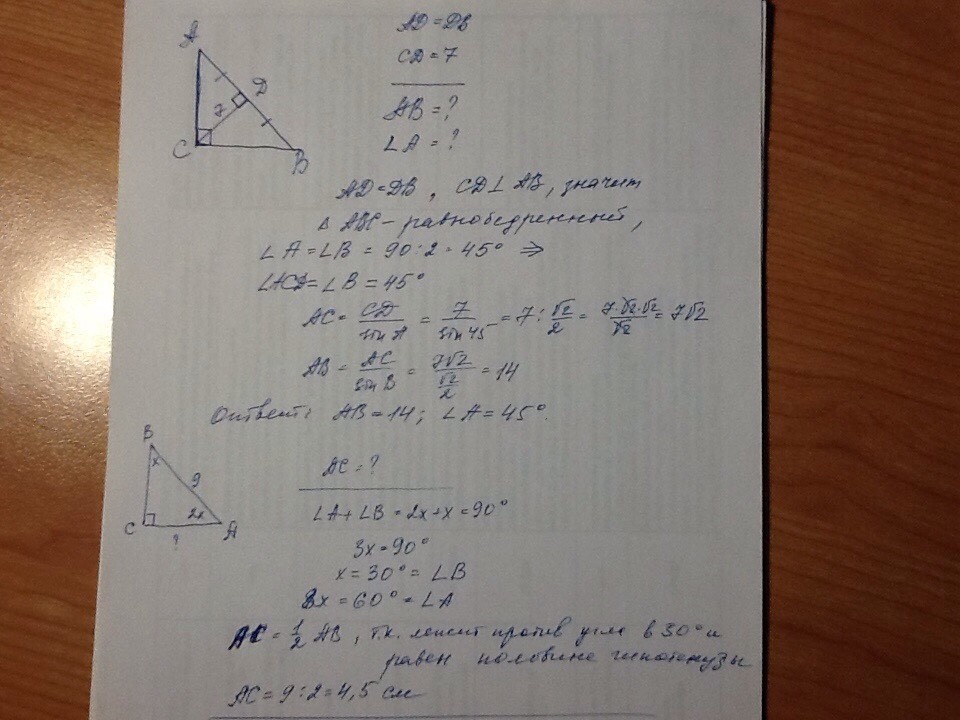 A
D
7
C
B
AD = DB
CD = 7
AB = ?
∠A = ?
AD = DB, CD ⊥ AB, значит
Δ ABC – равнобедренный,
∠A = ∠B = 90 : 2 = 45° ⇒
∠ACD = ∠B = 45°
AC = CD/sin A = 7/sin 45 = 7 : √2/2 = 7·√2·√2/√2 = 7√2
AB = AC/sin B = 7√2/(√2/2) = 14
Ответ: AB = 14; ∠A = 45°.
B
x
9
2x
C
A
?
AC = ?
∠A + ∠B = 2x + x = 90°
3x = 90°
x = 30° = ∠B
2x = 60° = ∠A
AC = 1/2 AB, т.к. лежит против угла в 30° и
равен половине гипотенузы
AC = 9 : 2 = 4,5 см